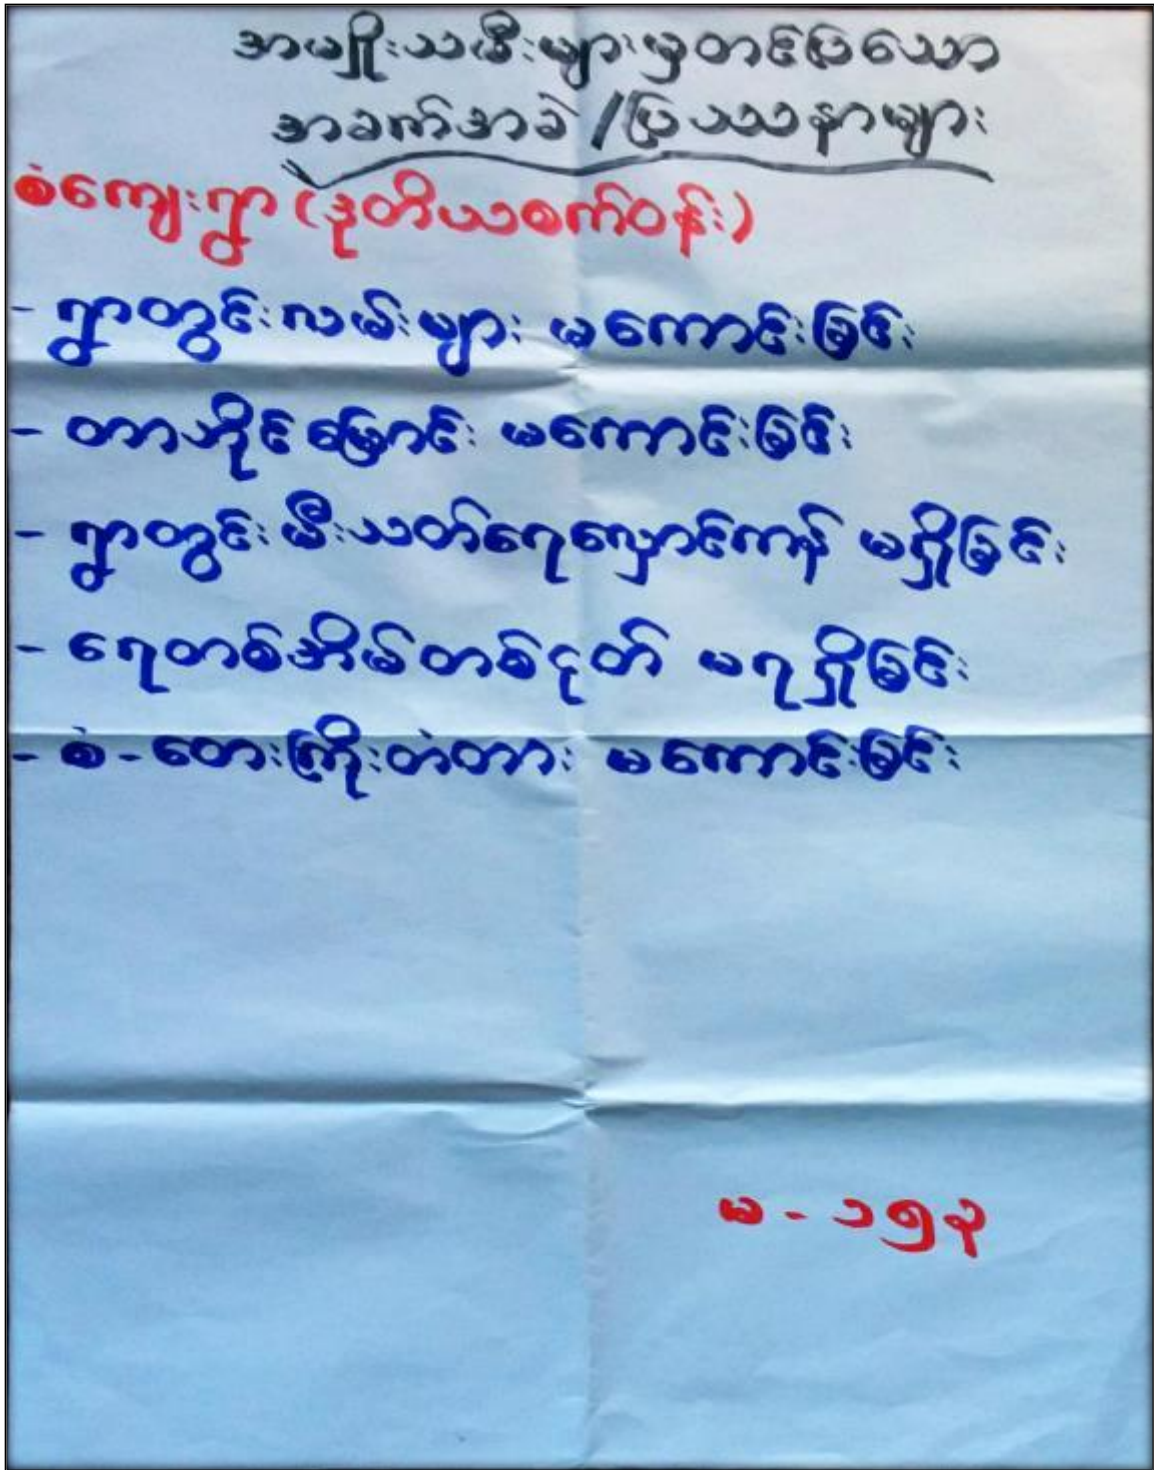 အမျိုးသမီးများမှတင်ပြသော
အခက်အခဲ/ပြဿနာများ
စံကျေးရွာ (ဒုတိယစက်ဝန်း)
- ရွာတွင်းလမ်းများ မကောင်းခြင်း
- တာဘိုင်မြောင်း မကောင်းခြင်း
- ရွာတွင်းမီးသတ်ရေလှောင်ကန် မရှိခြင်း
- ရေတစ်အိမ်တစ်ငုတ် မရရှိခြင်း
- စံ-တေးကြိုးတံတား မကောင်းခြင်း
မ - ၁၅၃